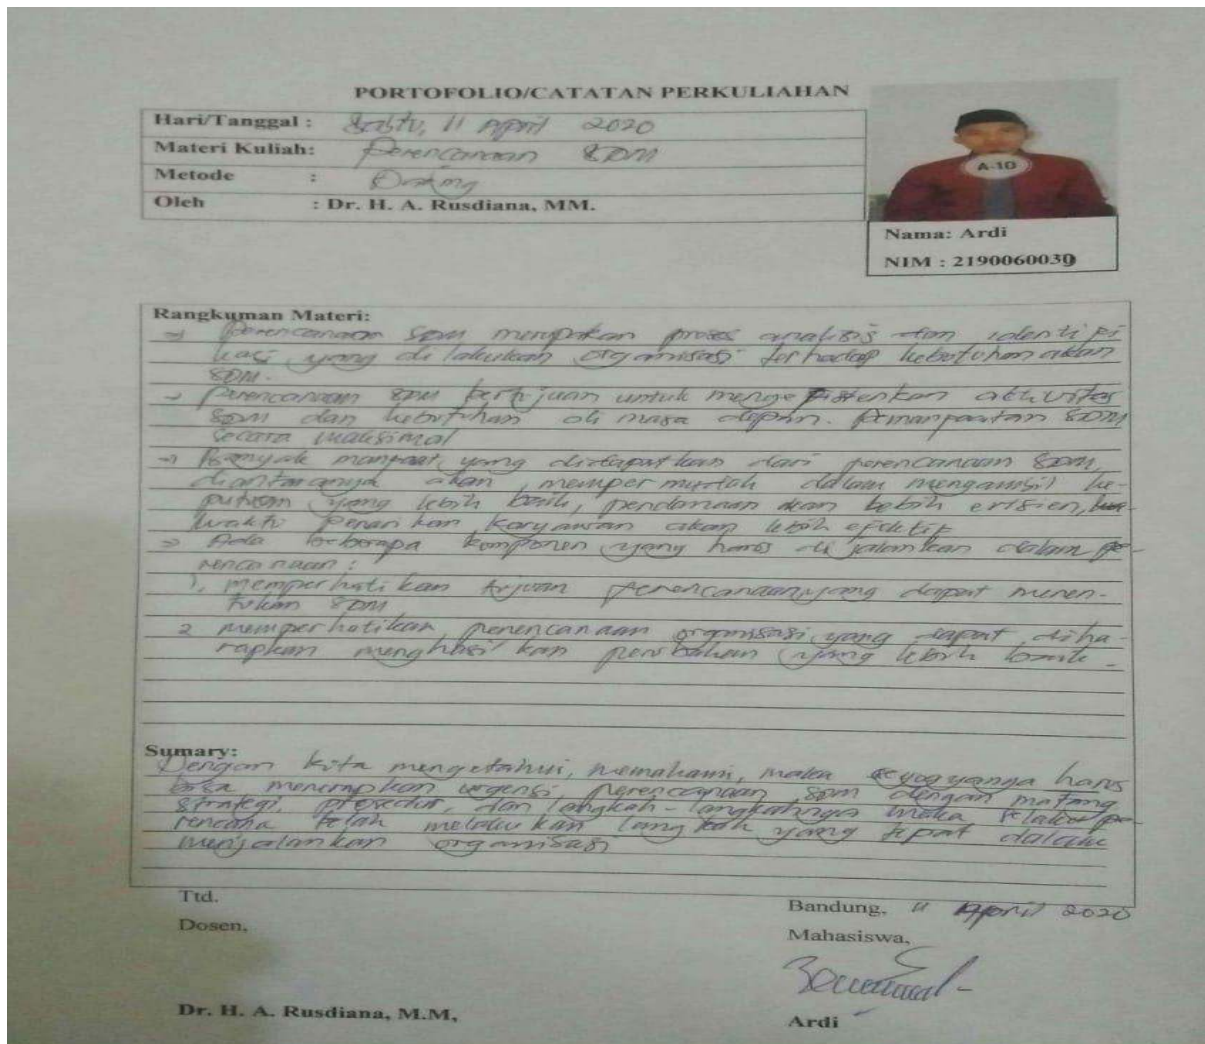 PORTOFOLIO/CATATAN PERKULIAHAN
Hari/Tanggal : Sabtu, 11 April 2020
Materi Kuliah: Perencanaan SDM
Metode : Daring
Oleh : Dr. H. A. Rusdiana, MM.
A-10
Nama: Ardi
NIM : 2190060039
Rangkuman Materi:
→ Perencanaan SDM merupakan proses analisis dan identifi
kasi yang di lakukan organisasi terhadap kebutuhan akan
SDM.
→ Perencanaan SDM bertujuan untuk mengefisienkan aktivitas
SDM dan kebutuhan di masa depan. Pemanpaatan SDM
secara maksimal
→ Banyak manpaat yang didapatkan dari perencanaan SDM,
diantaranya akan mempermudah dalam mengambil ke-
putusan yang lebih baik, pendanaan akan lebih efisien,
waktu penarikan karyawan akan lebih efektif
→ Ada beberapa komponen yang harus di jalankan dalam pe-
rencanaan :
1. memperhatikan tujuan perencanaan yang dapat menen-
tukan SDM
2 memperhatikan perencanaan organisasi yang dapat diha-
rapkan menghasilkan perubahan yang lebih baik.
Sumary:
Dengan kita mengetahui, memahami, maka seyogyanya harus
bisa menerapkan urgensi, perencanaan SDM dengan matang
strategi, prosedur, dan langkah-langkahnya maka selaku pe-
rencana telah melakukan langkah yang tepat dalam
menjalankan organisasi
Ttd.
Dosen,
Bandung, 11 April 2020
Mahasiswa,
Dr. H. A. Rusdiana, M.M,
Ardi